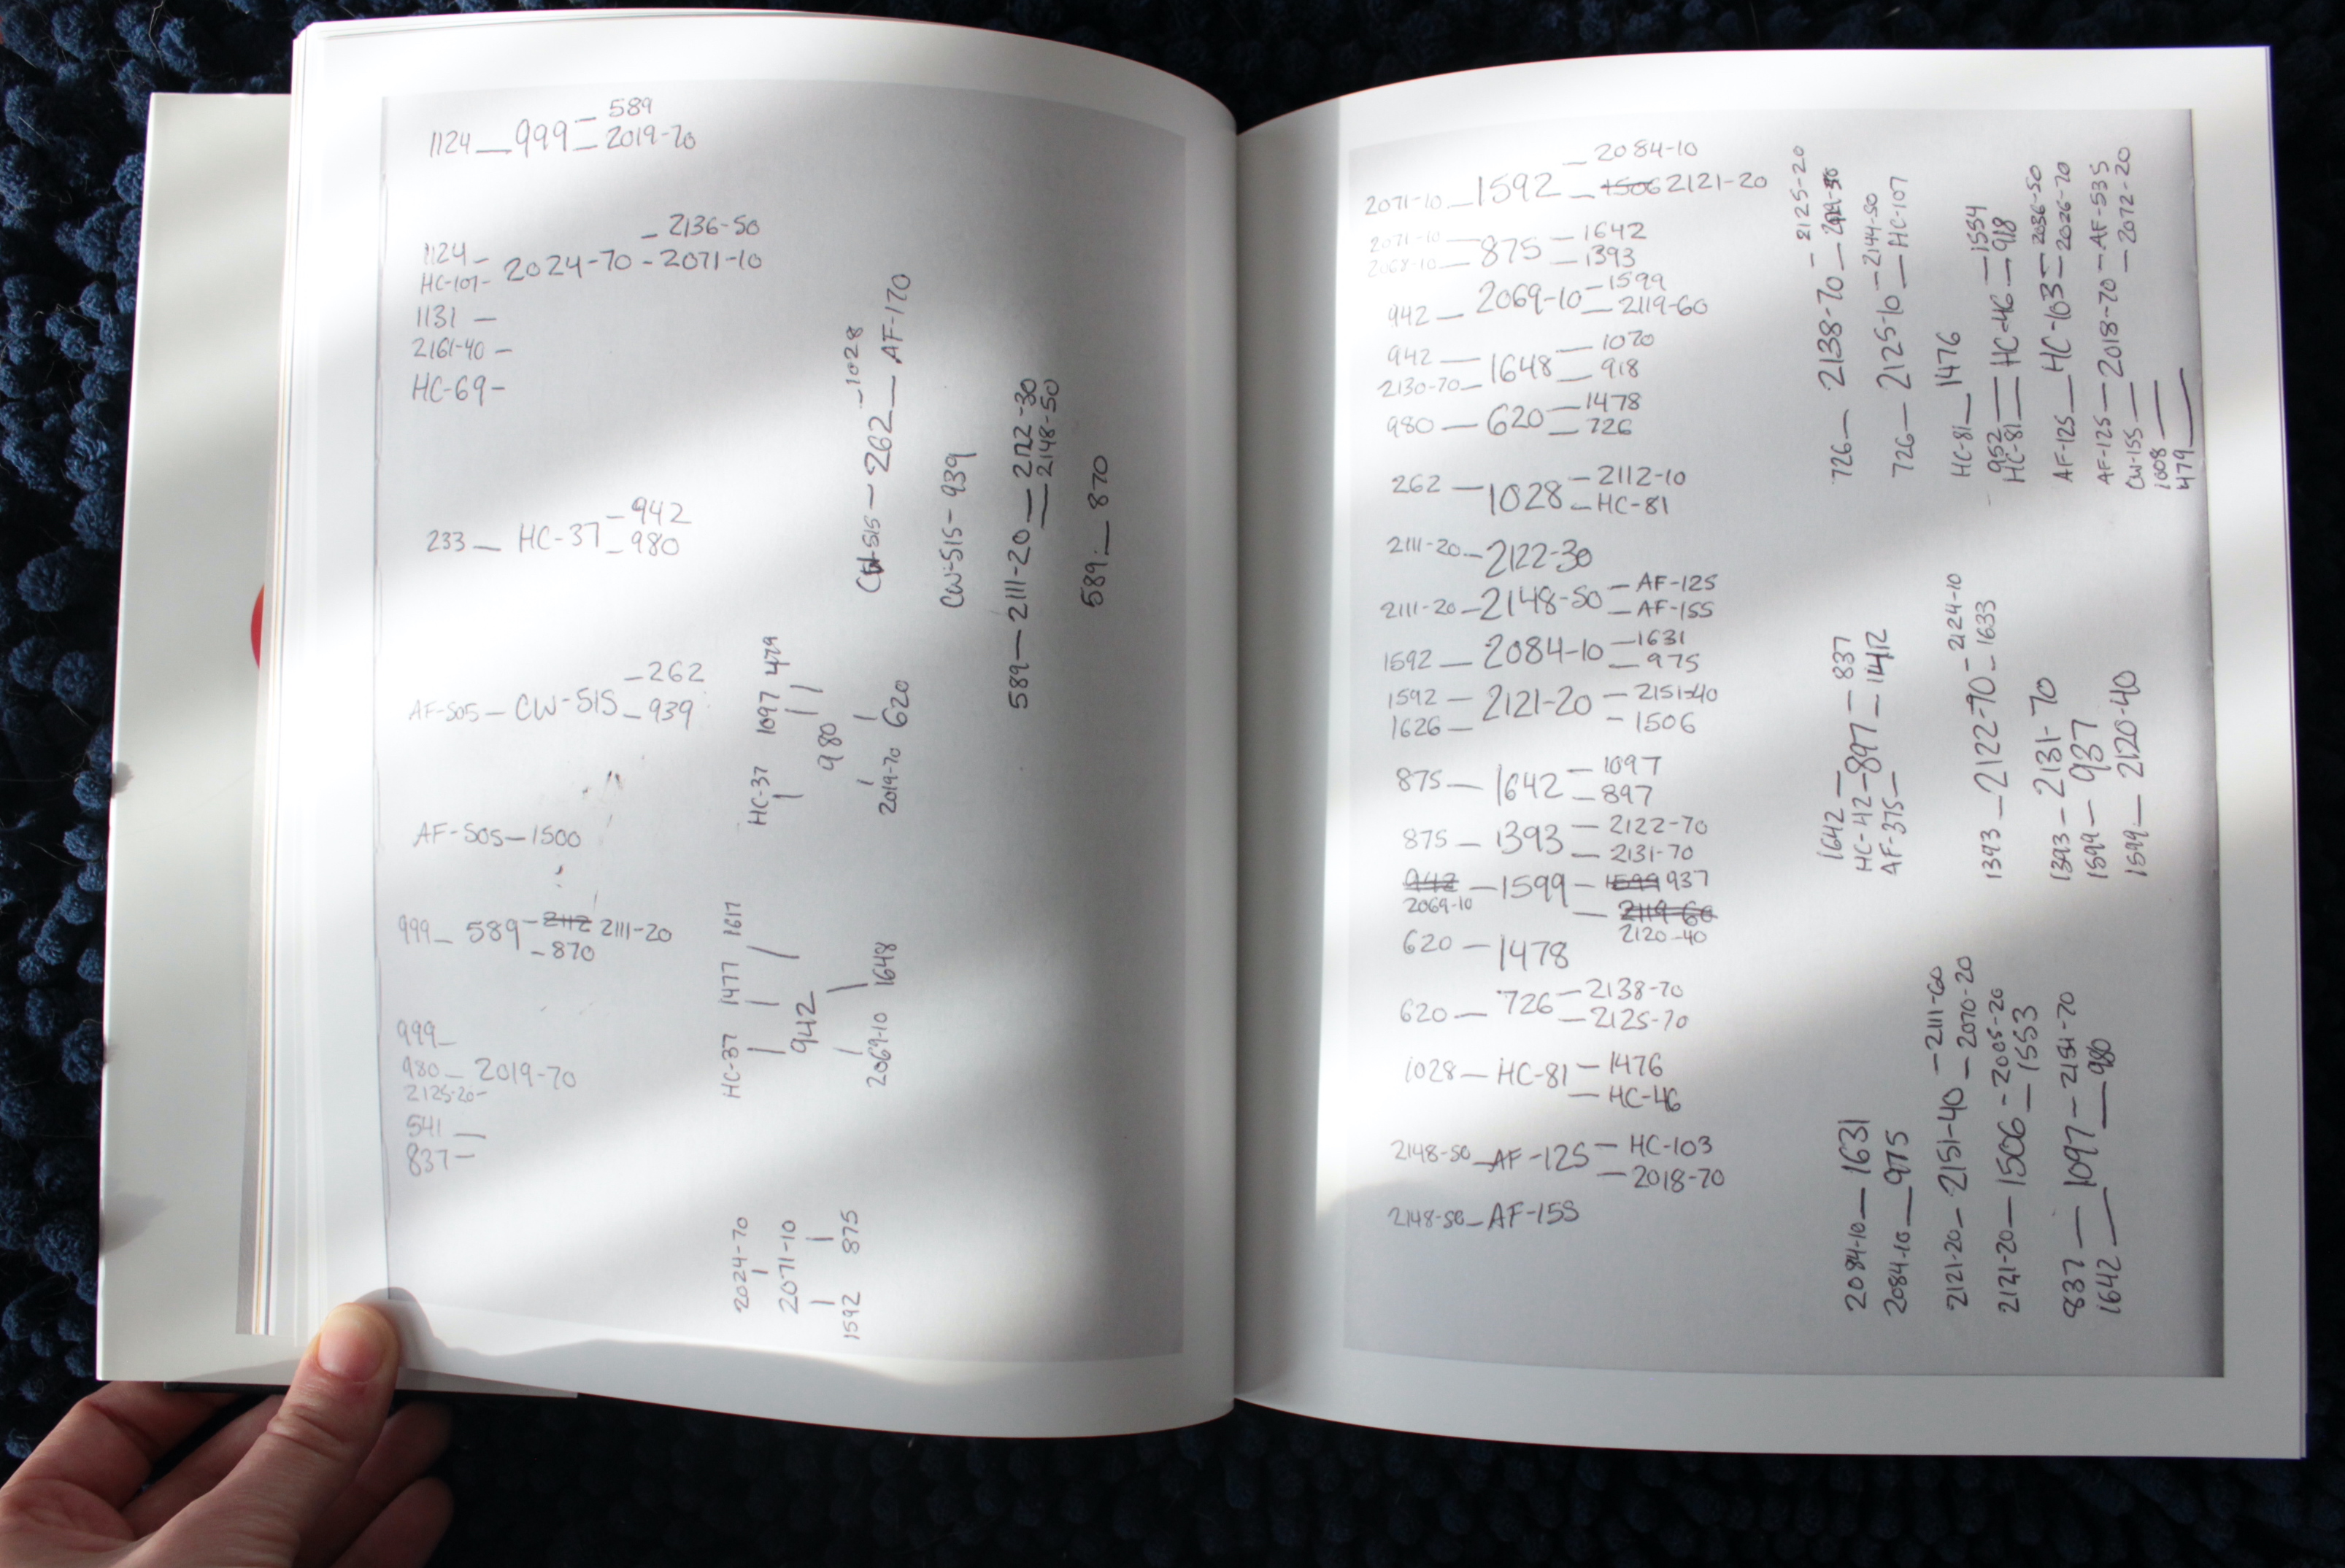 589
1124 — 999 — 2019-70
— 2136-50
1124 —
HC-107 — 2024-70 — 2071-10
1131 —
2161-40 —
HC-69 —
233 — HC-37 — 942
— 980
AF-505 — CW-515 — 262
— 939
AF-505 — 1500
999 — 589 — 2112 2111-20
— 870
999 —
980 — 2019-70
2125-20 —
541 —
837 —
CW-515 — 262 — 1028
— AF-170
CW-515 — 939
589 — 2111-20 — 2122-30
— 2148-50
589 — 870
HC-37 1097 479
980
2019-70 620
HC-37 1477 1617
942
2069-10 1648
2024-70
2071-10
1592 875
2071-10 — 1592 — 2084-10
— 1506 2121-20
2071-10 — 875 — 1642
2068-10 — — 1393
942 — 2069-10 — 1599
— 2119-60
942 — 1648 — 1070
2130-70 — — 918
980 — 620 — 1478
— 726
262 — 1028 — 2112-10
— HC-81
2111-20 — 2122-30
2111-20 — 2148-50 — AF-125
— AF-155
1592 — 2084-10 — 1631
— 975
1592 — 2121-20 — 2151-40
1626 — — 1506
875 — 1642 — 1097
— 897
875 — 1393 — 2122-70
— 2131-70
942 — 1599 — 1599 937
2069-10 — 2119-60
2120-40
620 — 1478
620 — 726 — 2138-70
— 2125-70
1028 — HC-81 — 1476
— HC-46
2148-50 — AF-125 — HC-103
— 2018-70
2148-50 — AF-155
726 — 2138-70 — 2125-20
726 — 2125-10 — 2144-50
— HC-107
HC-81 — 1476
952 — HC-46 — 1554
HC-81 — — 918
AF-125 — HC-103 — 2036-50
— 2026-70
AF-125 — 2018-70 — AF-535
CW-155 — — 2072-20
1608 —
479 —
1642 — 837
HC-42 — 897 — 1412
AF-375 —
1393 — 2122-70 — 2124-10
— 1633
1393 — 2131-70
1599 — 937
1599 — 2120-40
2084-10 — 1631
2084-10 — 975
2121-20 — 2151-40 — 2111-60
— 2070-20
2121-20 — 1506 — 2005-20
— 1553
837 — 1097 — 2151-70
1642 — — 980